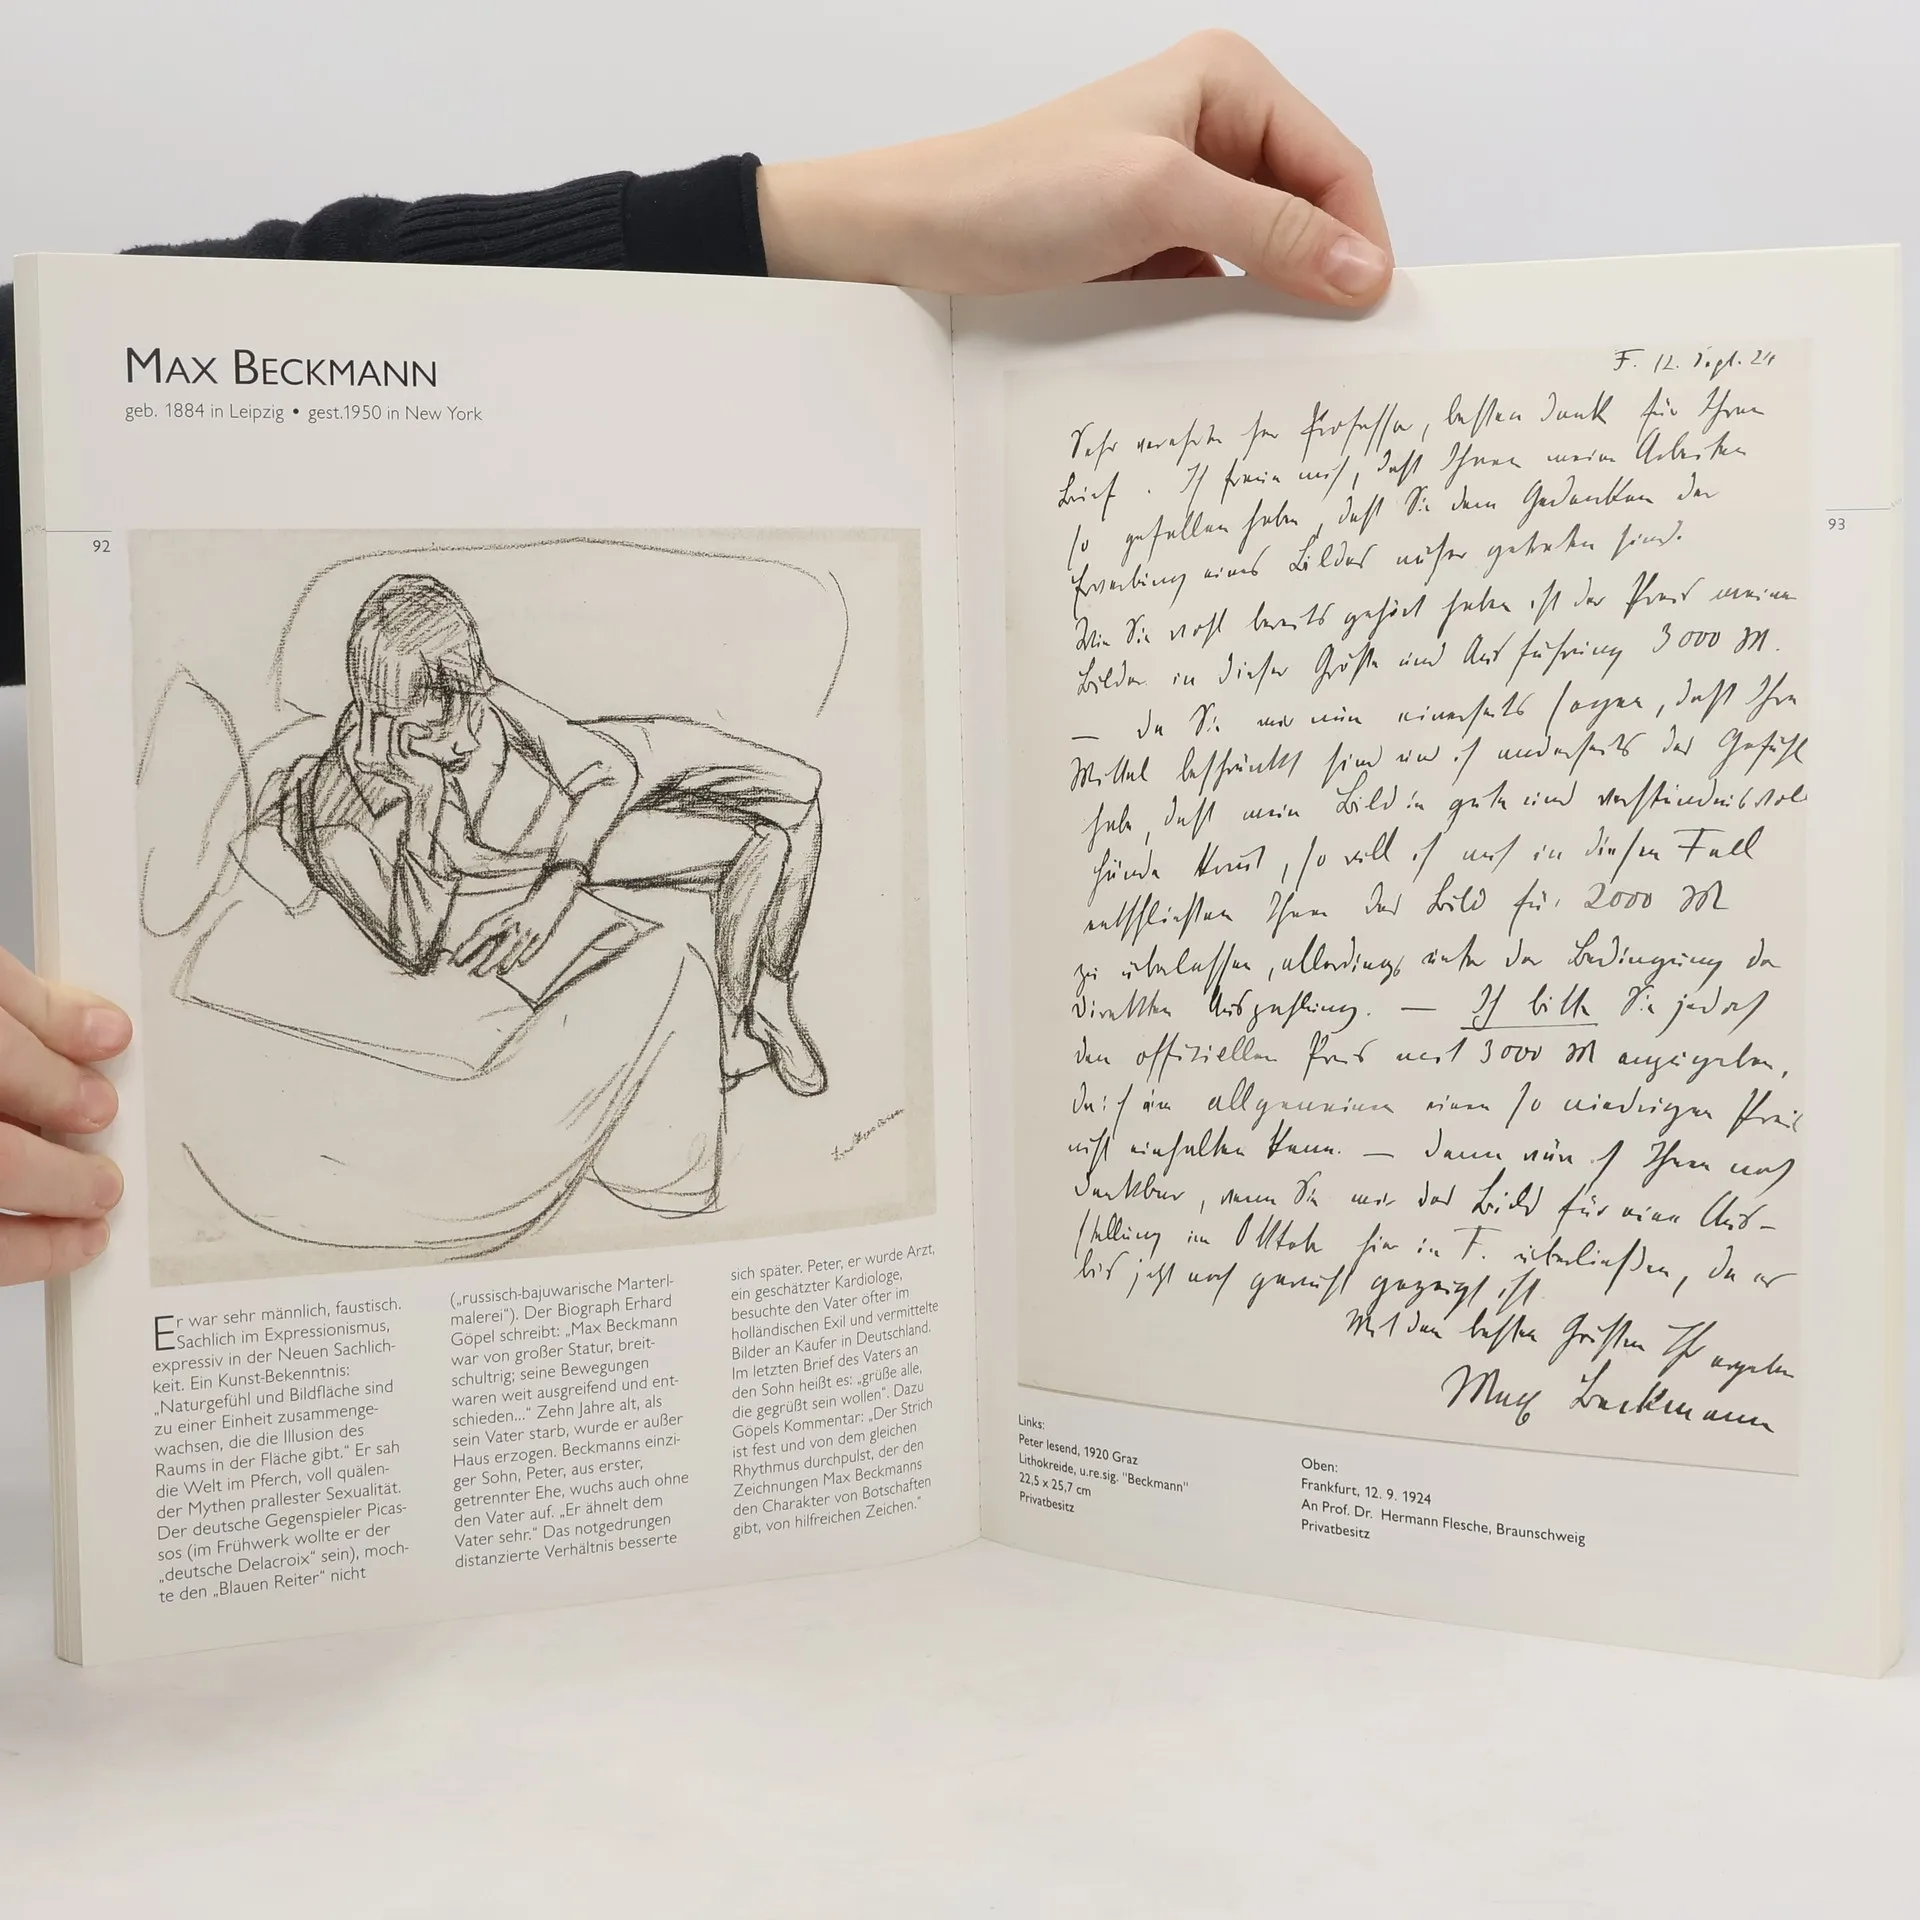 MAX BECKMANN
geb. 1884 in Leipzig • gest.1950 in New York
92
Beckmann
Er war sehr männlich, faustisch.
Sachlich im Expressionismus,
expressiv in der Neuen Sachlich-
keit. Ein Kunst-Bekenntnis:
„Naturgefühl und Bildfläche sind
zu einer Einheit zusammenge-
wachsen, die die Illusion des
Raums in der Fläche gibt.“ Er sah
die Welt im Pferch, voll quälen-
der Mythen prallester Sexualität.
Der deutsche Gegenspieler Picas-
sos (im Frühwerk wollte er der
„deutsche Delacroix“ sein), moch-
te den „Blauen Reiter“ nicht
(„russisch-bajuwarische Marterl-
malerei“). Der Biograph Erhard
Göpel schreibt: „Max Beckmann
war von großer Statur, breit-
schultrig; seine Bewegungen
waren weit ausgreifend und ent-
schieden...“ Zehn Jahre alt, als
sein Vater starb, wurde er außer
Haus erzogen. Beckmanns einzi-
ger Sohn, Peter, aus erster,
getrennter Ehe, wuchs auch ohne
den Vater auf. „Er ähnelt dem
Vater sehr.“ Das notgedrungen
distanzierte Verhältnis besserte
sich später. Peter, er wurde Arzt,
ein geschätzter Kardiologe,
besuchte den Vater öfter im
holländischen Exil und vermittelte
Bilder an Käufer in Deutschland.
Im letzten Brief des Vaters an
den Sohn heißt es: „grüße alle,
die gegrüßt sein wollen“. Dazu
Göpels Kommentar: „Der Strich
ist fest und von dem gleichen
Rhythmus durchpulst, der den
Zeichnungen Max Beckmanns
den Charakter von Botschaften
gibt, von hilfreichen Zeichen.“
F. 12. Sept. 24
Sehr verehrter Herr Professor, besten Dank für Ihren
Brief. Ich freue mich, daß Ihnen meine Arbeiten
so gefallen haben, daß Sie dem Gedanken der
Erwerbung eines Bildes näher getreten sind.
Wie Sie wohl bereits gehört haben ist der Preis meiner
Bilder in dieser Größe und Ausführung 3000 M.
— Da Sie mir nun einerseits sagen, daß Ihre
Mittel beschränkt sind und ich anderseits das Gefühl
habe, daß mein Bild in gute und verständnisvolle
Hände kommt, so will ich mich in diesem Fall
entschließen Ihnen das Bild für 2000 M
zu überlassen, allerdings unter der Bedingung der
direkten Auszahlung. — Ich bitte Sie jedoch
den offiziellen Preis mit 3000 M anzugeben,
da ich im allgemeinen einen so niedrigen Preis
nicht einhalten kann. — Dann wäre ich Ihnen noch
dankbar, wenn Sie mir das Bild für eine Aus-
stellung im Oktob. hier in F. überließen, da es
bis jetzt noch garnicht gezeigt ist.
Mit den besten Grüßen Ihr ergeben
Max Beckmann
93
Links:
Peter lesend, 1920 Graz
Lithokreide, u.re.sig. "Beckmann"
22,5 x 25,7 cm
Privatbesitz
Oben:
Frankfurt, 12. 9. 1924
An Prof. Dr. Hermann Flesche, Braunschweig
Privatbesitz